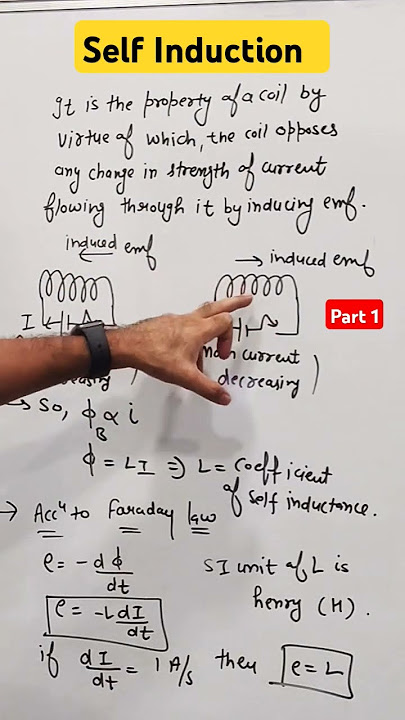 Self Induction
It is the property of a coil by
virtue of which, the coil opposes
any change in strength of current
flowing through it by inducing emf.
induced emf
→ induced emf
I
Part 1
main current
decreasing
→ So, ϕ_B ∝ i
ϕ = LI ⇒ L = coefficient
of self inductance.
→ Accⁿ to Faraday law
e = -dϕ/dt
SI unit of L is
henry (H).
e = -L dI/dt
if dI/dt = 1 A/s then e = L